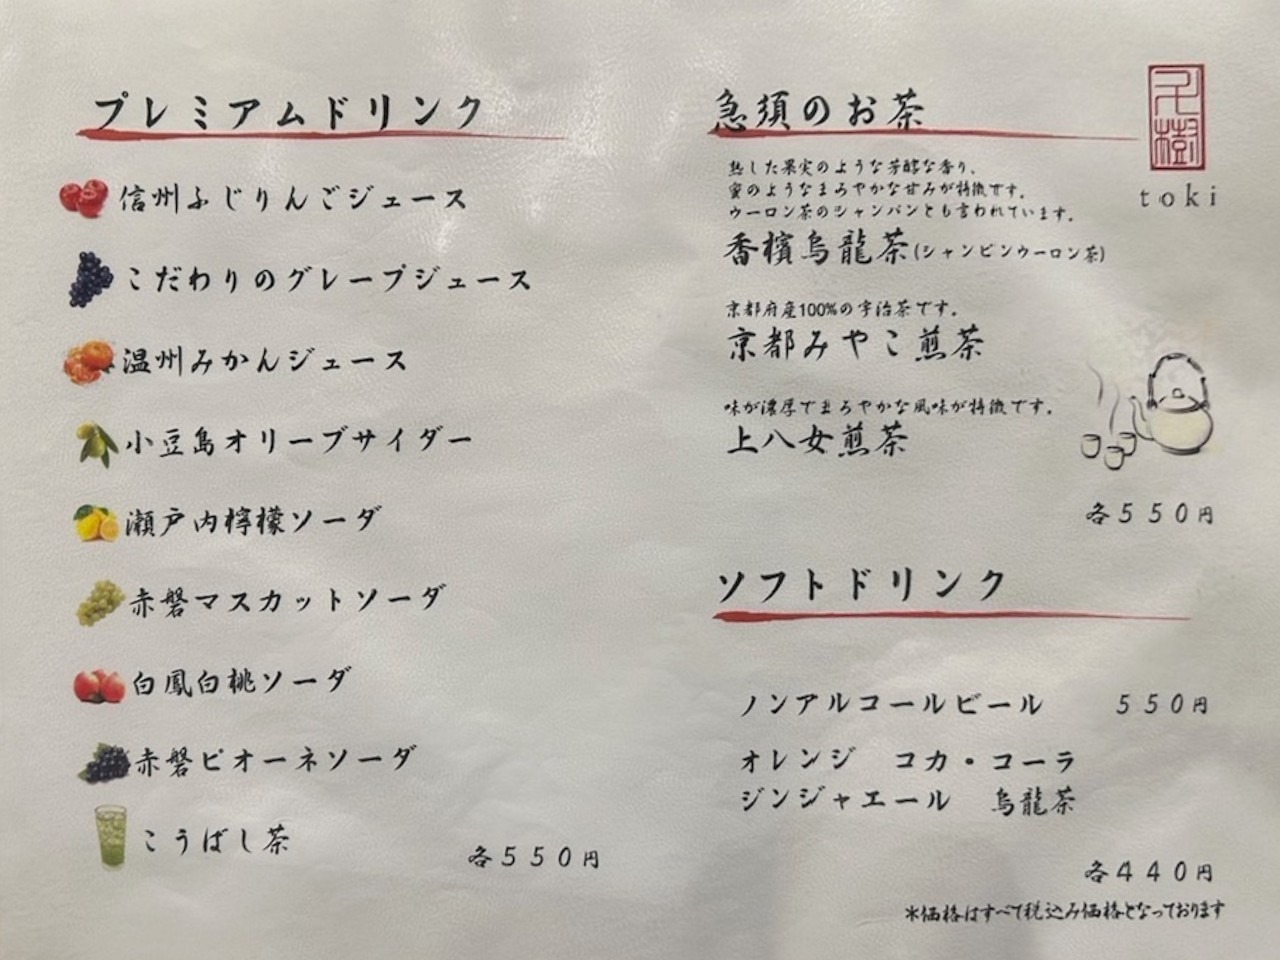 プレミアムドリンク
信州ふじりんごジュース
こだわりのグレープジュース
温州みかんジュース
小豆島オリーブサイダー
瀬戸内檸檬ソーダ
赤磐マスカットソーダ
白鳳白桃ソーダ
赤磐ピオーネソーダ
こうばし茶
各550円
急須のお茶
熟した果実のような芳醇な香り、
蜜のようなまろやかな甘みが特徴です。
ウーロン茶のシャンパンとも言われています。
香檳烏龍茶(シャンピンウーロン茶)
京都府産100%の宇治茶です。
京都みやこ煎茶
味が濃厚でまろやかな風味が特徴です。
上八女煎茶
各550円
樹
toki
ソフトドリンク
ノンアルコールビール 550円
オレンジ コカ・コーラ
ジンジャエール 烏龍茶
各440円
*価格はすべて税込み価格となっております